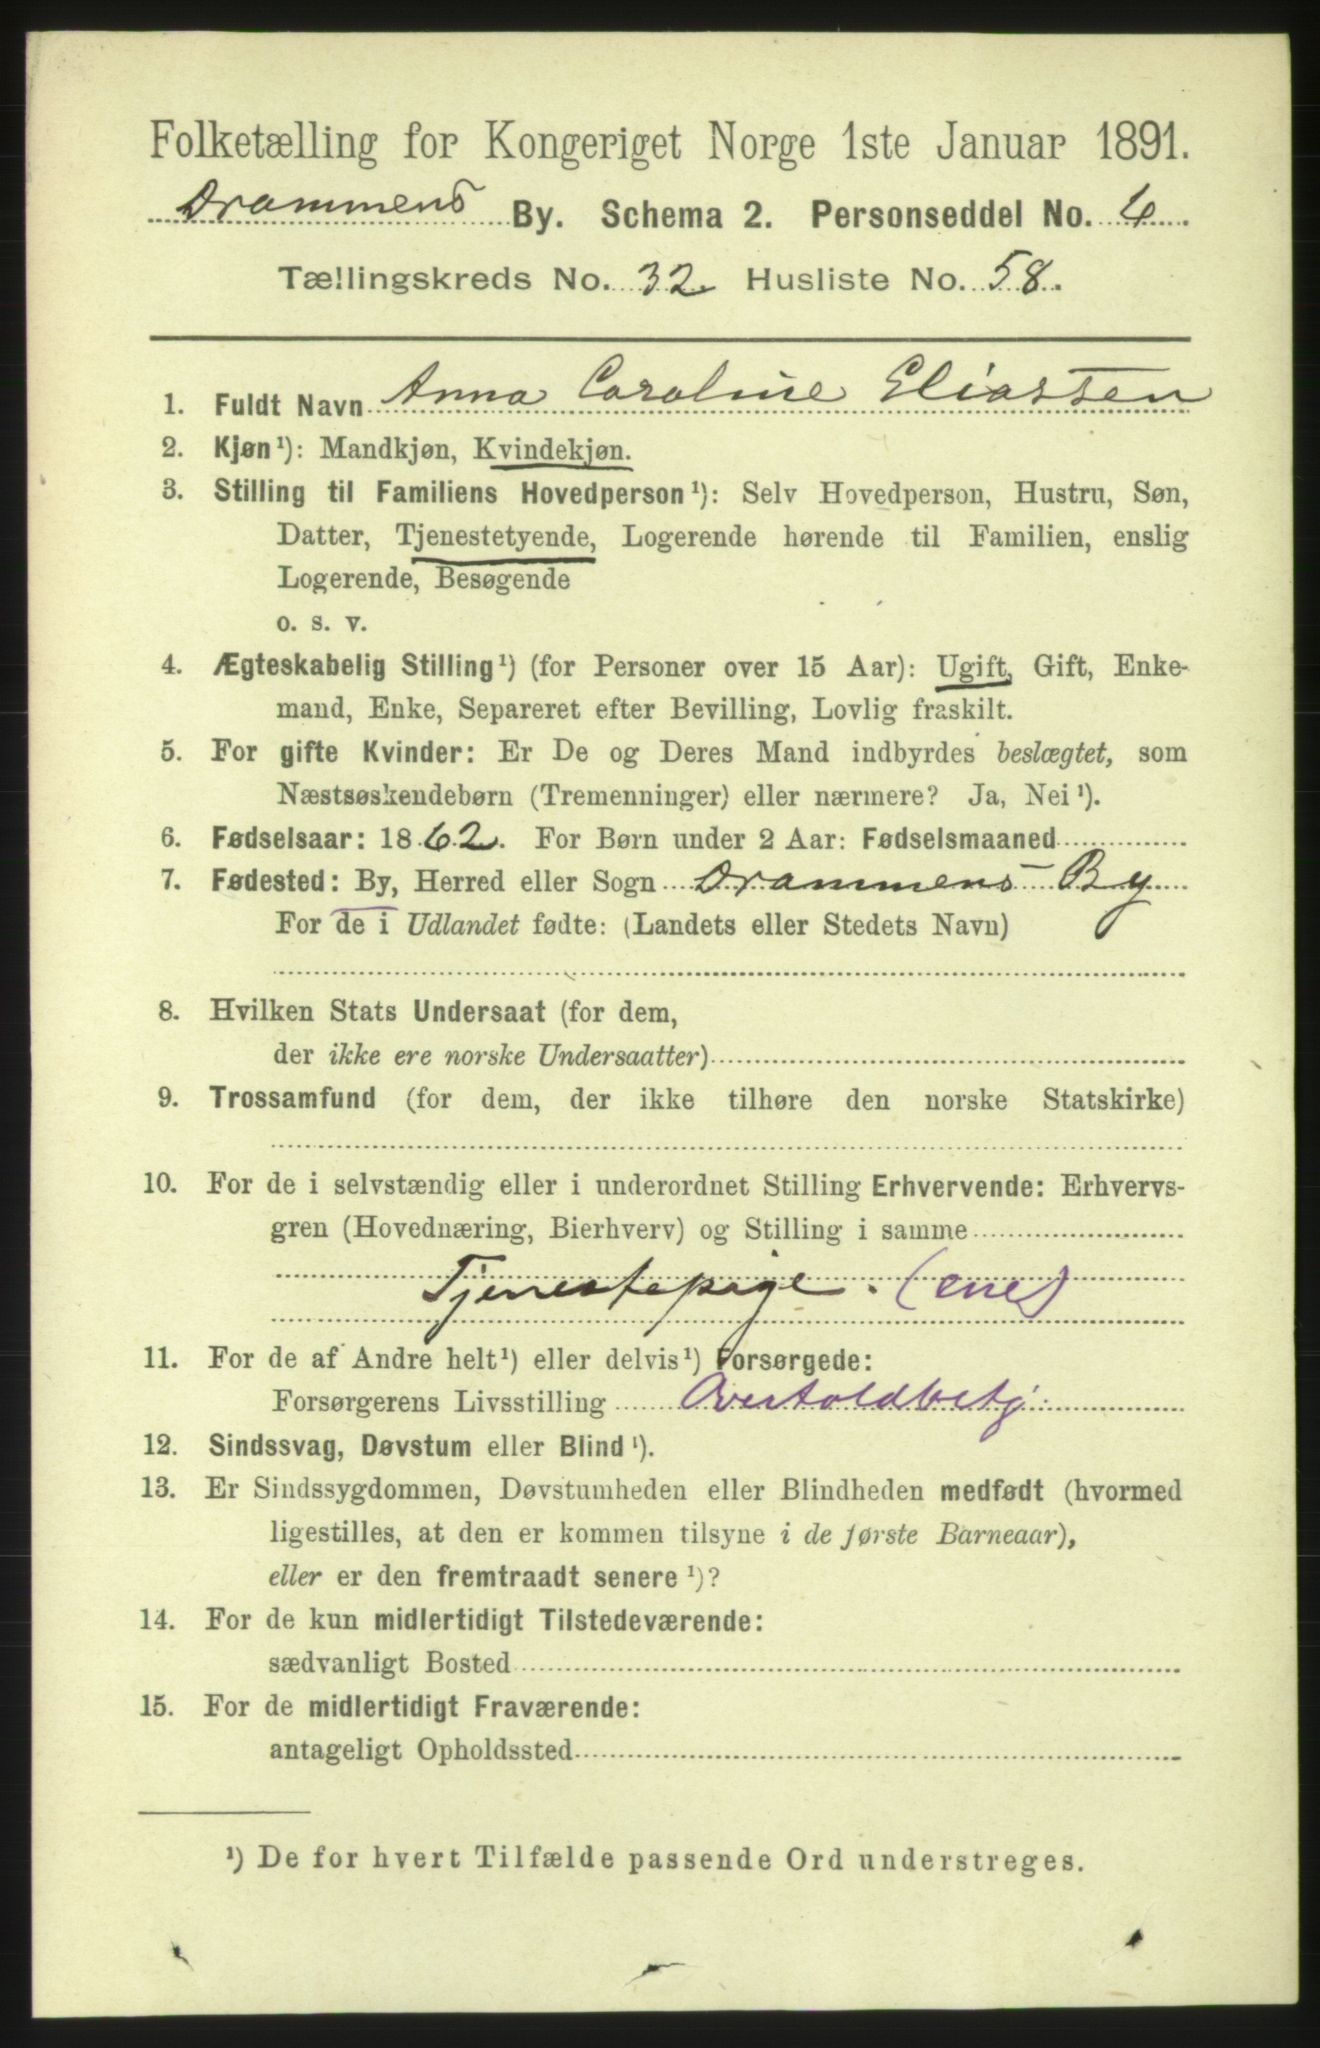 Folketælling for Kongeriget Norge 1ste Januar 1891.
Drammens By. Schema 2. Personseddel No. 6.
Tællingskreds No. 32. Husliste No. 58.
1. Fuldt Navn Anna Caroline Eliassen
2. Kjøn ¹): Mandkjøn, Kvindekjøn.
3. Stilling til Familiens Hovedperson ¹): Selv Hovedperson, Hustru, Søn,
Datter, Tjenestetyende, Logerende hørende til Familien, enslig
Logerende, Besøgende
o. s. v.
4. Ægteskabelig Stilling ¹) (for Personer over 15 Aar): Ugift, Gift, Enke-
mand, Enke, Separeret efter Bevilling, Lovlig fraskilt.
5. For gifte Kvinder: Er De og Deres Mand indbyrdes beslægtet, som
Næstsøskendebørn (Tremenninger) eller nærmere? Ja, Nei ¹).
6. Fødselsaar: 1862. For Børn under 2 Aar: Fødselsmaaned
7. Fødested: By, Herred eller Sogn Drammens By
For de i Udlandet fødte: (Landets eller Stedets Navn)
8. Hvilken Stats Undersaat (for dem,
der ikke ere norske Undersaatter)
9. Trossamfund (for dem, der ikke tilhøre den norske Statskirke)
10. For de i selvstændig eller i underordnet Stilling Erhvervende: Erhvervs-
gren (Hovednæring, Bierhverv) og Stilling i samme
Tjenestepige. (ene)
11. For de af Andre helt ¹) eller delvis ¹) Forsørgede:
Forsørgerens Livsstilling
12. Sindssvag, Døvstum eller Blind ¹).
13. Er Sindssygdommen, Døvstumheden eller Blindheden medfødt (hvormed
ligestilles, at den er kommen tilsyne i de første Barneaar),
eller er den fremtraadt senere ¹)?
14. For de kun midlertidigt Tilstedeværende:
sædvanligt Bosted
15. For de midlertidigt Fraværende:
antageligt Opholdssted
¹) De for hvert Tilfælde passende Ord understreges.